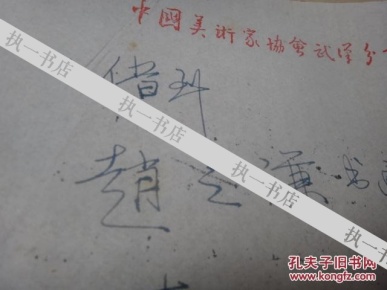 中國美術家協會武漢分
借到
趙之謙书
执一书店
执一书店
执一书店
执一书店
执一书店
孔夫子旧书网